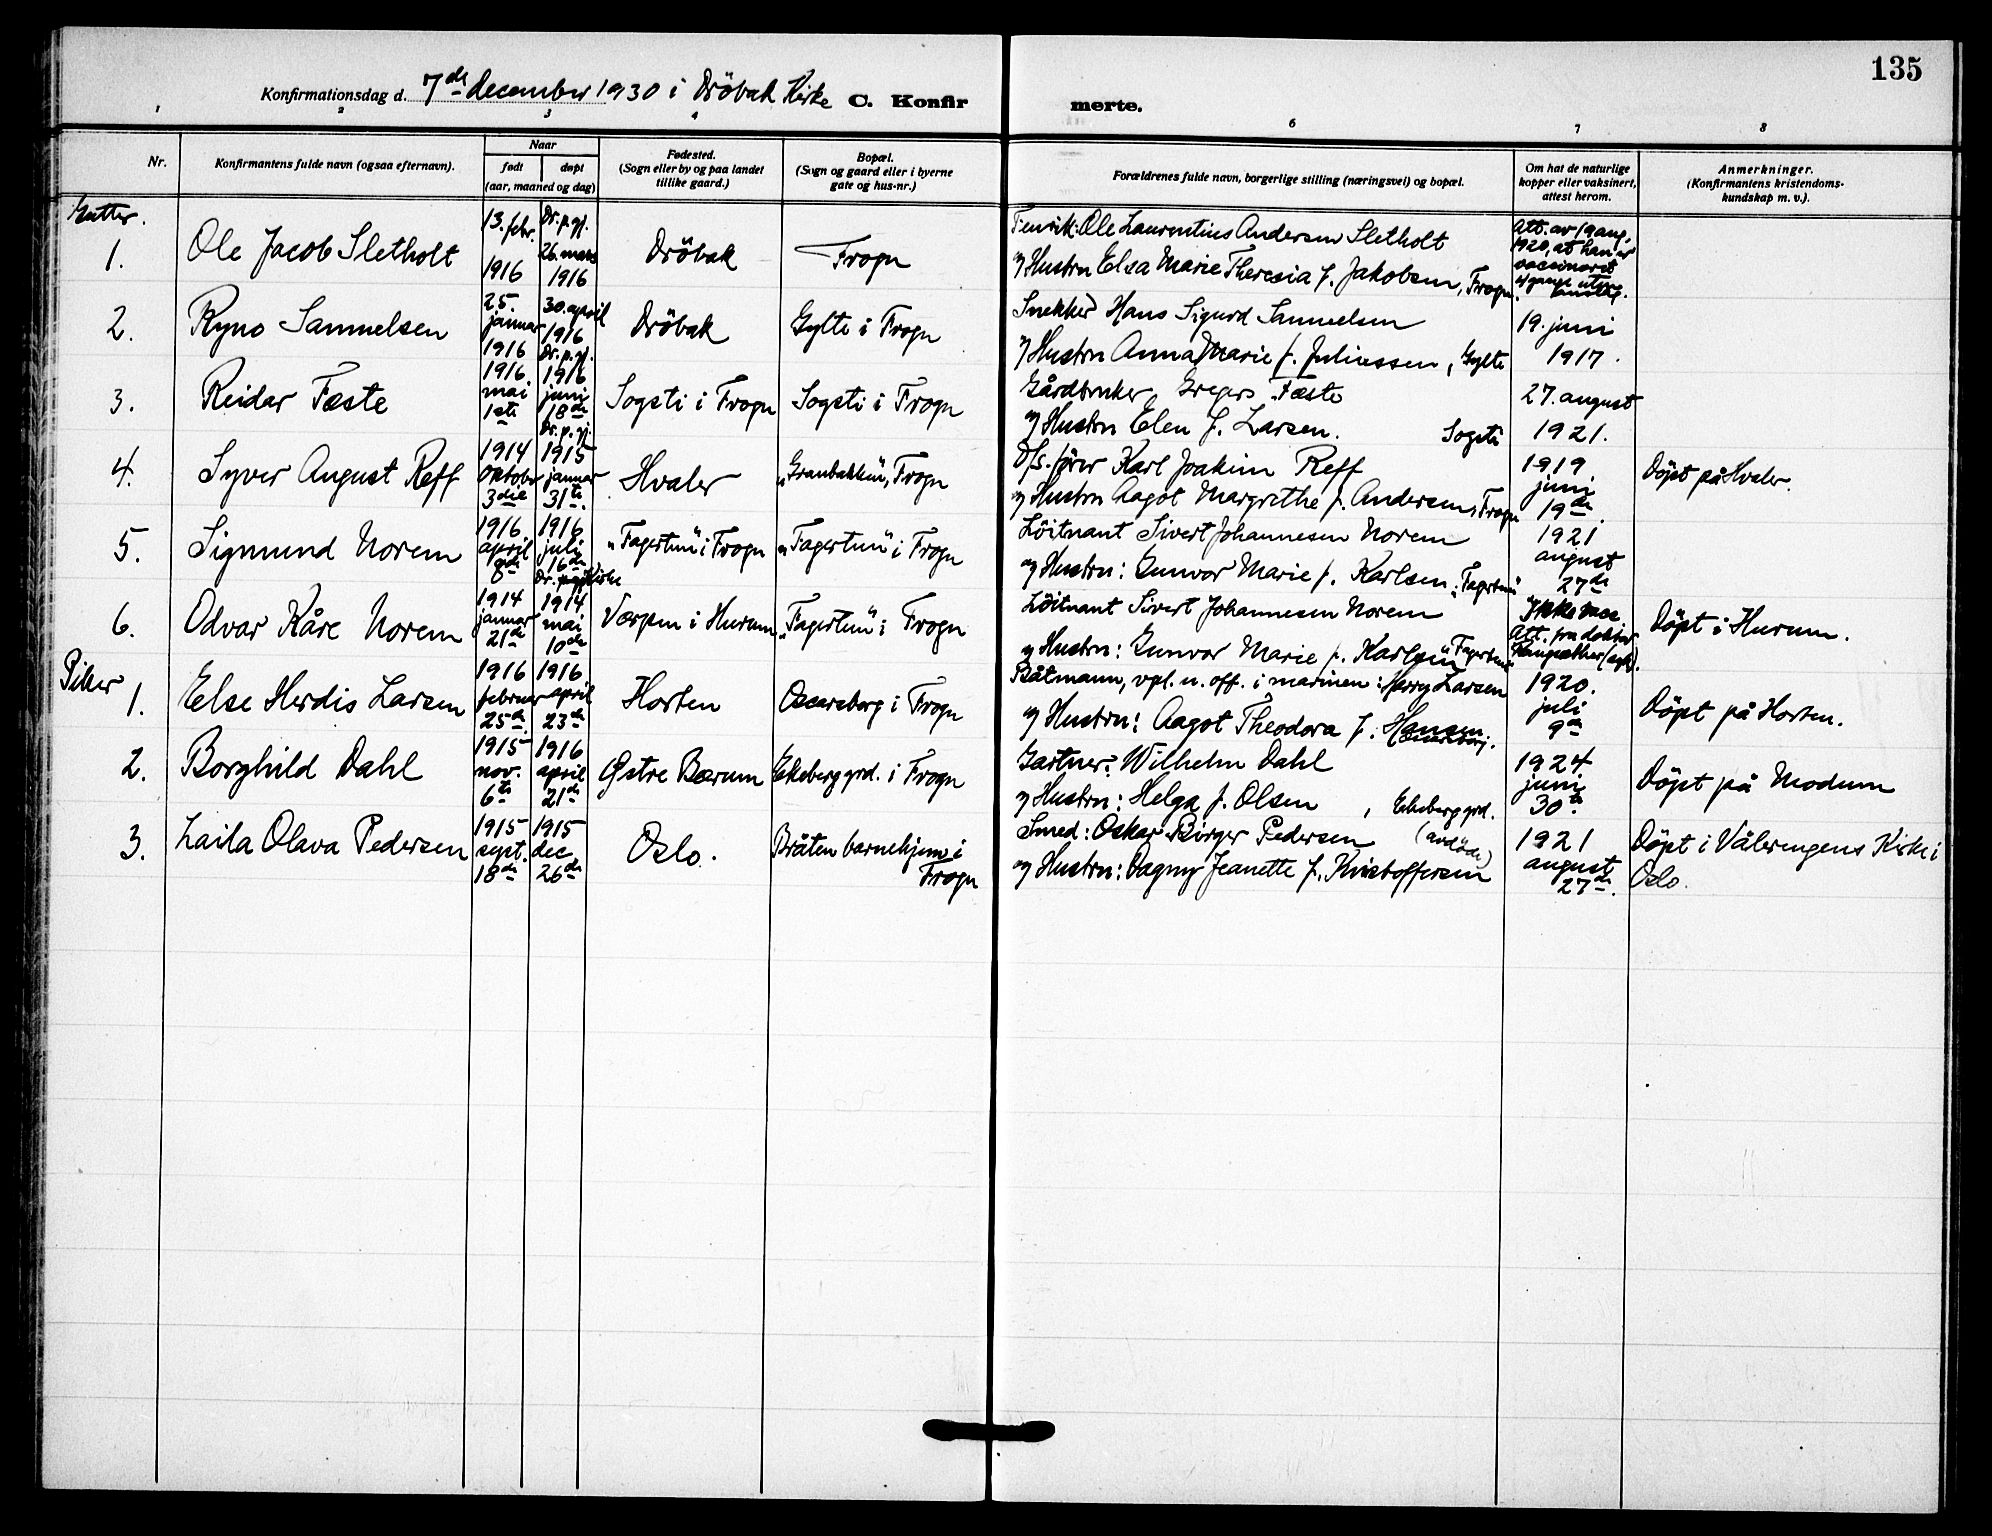 135
Konfirmationsdag d. 7de december 1930 i Dröbak Kirke C. Konfir merte.
1 2 3 4 6 7 8
Nr. Konfirmantens fulde navn (ogsaa efternavn). Naar født døpt (aar, maaned og dag) Fødested. (Sogn eller by og paa landet tillike gaard.) Bopæl. (Sogn og gaard eller i byerne gate og hus-nr.) Forældrenes fulde navn, borgerlige stilling (næringsvei) og bopæl. Om hat de naturlige kopper eller vaksinert, attest herom. Anmerkninger. (Konfirmantens kristendoms- kundskap m. v.).
Gutter.
1. Ole Jacob Sletholt 13. febr. 1916 Dr. p. gj. 26. mars 1916 Dröbak Frogn Fenrik: Ole Laurentius Andersen Sletholt
og Hustru Elsa Marie Theresia f. Jakobsen, Frogn. Att. av 19 aug. 1920, at han er vaccineret 4 gange uten
2. Ryno Samuelsen 25. januar 1916 30. april 1916 Dr. p. gj. Dröbak Gylte i Frogn Snekker Hans Sigurd Samuelsen
og Hustru Anna Marie f. Juliussen, Gylte 19. juni 1917.
3. Reidar Fæste 1916 mai 1ste 1916 juni 18de Dr. p. gj. Sogsti i Frogn Sogsti i Frogn Gårdbruker Gregers Fæste
og Hustru Elen f. Larsen. Sogsti 27. august 1921.
4. Syver August Reff 1914 oktober 3die 1915 januar 31te. Hvaler "Granbakken", Frogn Karl Joakim Reff
og Hustru Aagot Margrethe f. Andersen, Frogn 1919 juni 19de. Döpt på Hvaler.
5. Sigmund Norem 1916 april 8de 1916 juli 16de Dr. Kirke "Fagertun" i Frogn "Fagertun" i Frogn Löitnant Sivert Johannesen Norem
og Hustru: Gunvor Marie f. Karlsen, "Fagertun" 1921 august 27de
6. Odvar Kåre Norem 1914 januar 21de 1914 mai 10de Værpen i Hurum "Fagertun" i Frogn Löitnant Sivert Johannesen Norem
og Hustru: Gunvor Marie f. Karlsen "Fagertun" Ikke vacc Att. fra doktor Döpt i Hurum.
Piker
1. Else Herdis Larsen 1916 februar 25de. 1916 april 23de Horten Oscarsborg i Frogn Båtmann, vpl. u. off. i marinen: Harry Larsen
og Hustru: Aagot Theodora f. Hansen 1920. juli 9de Döpt på Horten.
2. Borghild Dahl 1915 nov. 6te 1916 april 21de Østre Bærum Ekeberg grd. i Frogn Gartner: Wilhelm Dahl
og Hustru: Helga f. Olsen, Ekeberg grd. 1924 juni 30te. Döpt på Modum
3. Laila Olava Pedersen 1915 sept. 18de 1915 dec 26de Oslo. Bråten barnehjem i Frogn Smed: Oskar Birger Pedersen (avdöde)
og Hustru: Dagny Jeanette f. Kristoffersen 1921 august 27de. Döpt i Vålerengens Kirke i Oslo.